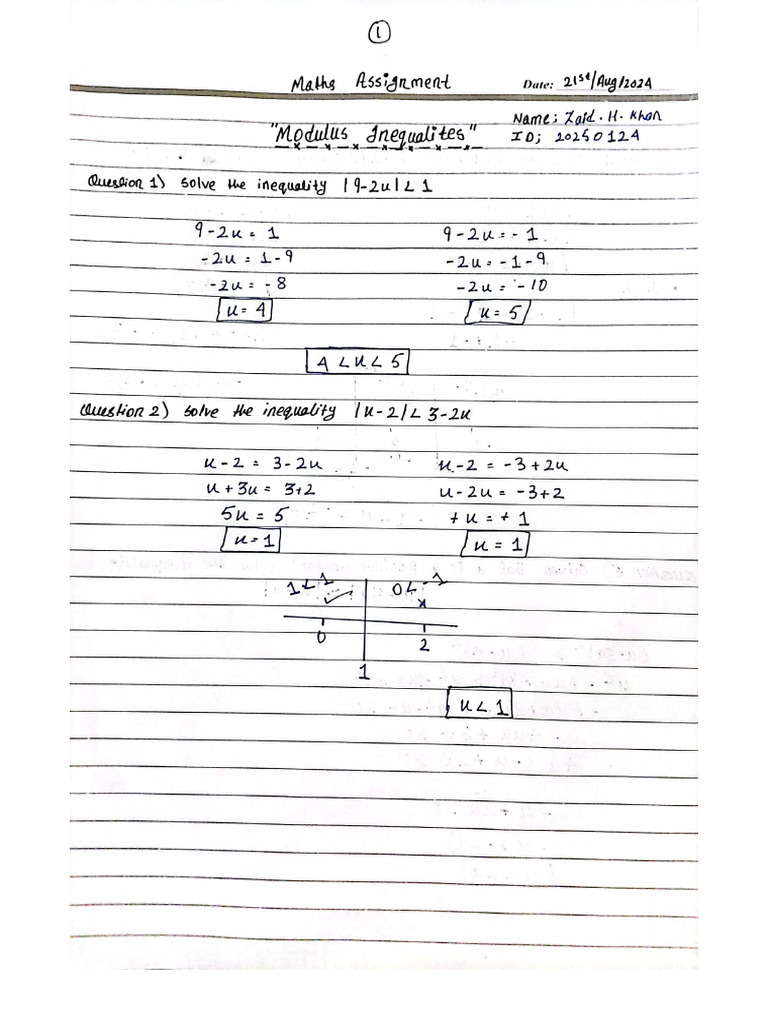 1
Maths Assignment Date: 21st/Aug/2024
Name; Zaid. H. Khan
"Modulus Inequalites" ID; 20250124
Question 1) Solve the inequality |9-2u| < 1
9-2u = 1 9-2u = -1
-2u = 1-9 -2u = -1-9
-2u = -8 -2u = -10
u = 4 u = 5
4 < u < 5
Question 2) Solve the inequality |u-2| < 3-2u
u-2 = 3-2u u-2 = -3+2u
u+3u = 3+2 u-2u = -3+2
5u = 5 +u = +1
u = 1 u = 1
1 < 1 0 < -1
✓ x
0 2
1
u < 1